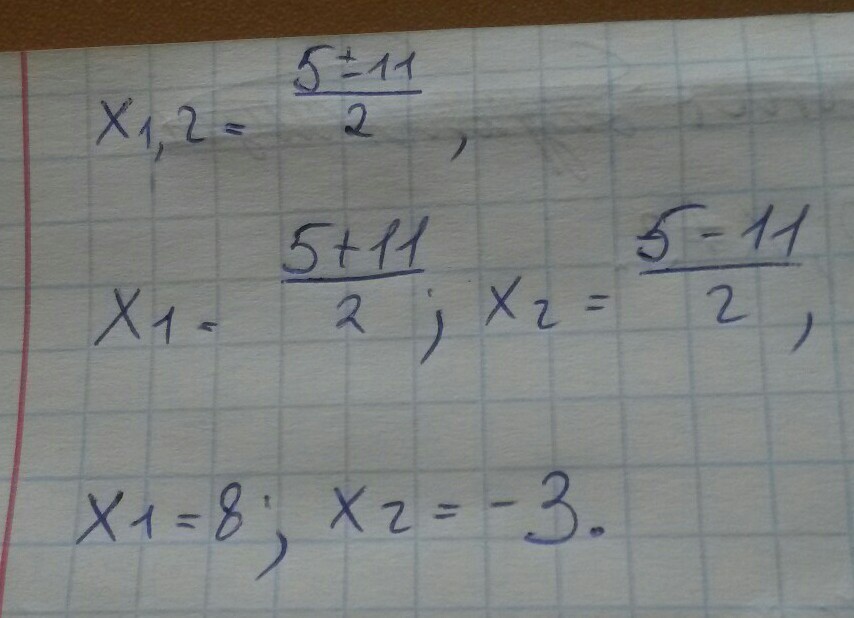 x₁,₂ = (5±11)/2,
x₁ = (5+11)/2; x₂ = (5-11)/2,
x₁ = 8; x₂ = -3.